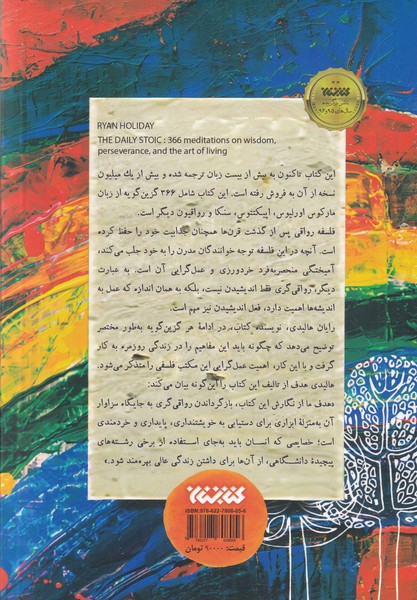 کتیبه
ناشر برگزیده
سال‌های ۹۵ و ۹۶
RYAN HOLIDAY
THE DAILY STOIC : 366 meditations on wisdom,
perseverance, and the art of living
این کتاب تاکنون به بیش از بیست زبان ترجمه شده و بیش از یك میلیون
نسخه از آن به فروش رفته است. این کتاب شامل ۳۶۶ گزین‌گویه از زبان
مارکوس اورلیوس، اپیکتتوس، سنکا و رواقیون دیگر است.
فلسفه رواقی پس از گذشت قرن‌ها همچنان جذابیت خود را حفظ کرده
است. آنچه در این فلسفه توجه خوانندگان مدرن را به خود جلب می‌کند،
آمیختگی منحصربه‌فرد خردورزی و عمل‌گرایی آن است. به عبارت
دیگر، رواقی‌گری فقط اندیشیدن نیست، بلکه به همان اندازه که عمل به
اندیشه‌ها اهمیت دارد، فعل اندیشیدن نیز مهم است.
رایان هالیدی، نویسنده کتاب، در ادامهٔ هر گزین‌گویه به‌طور مختصر
توضیح می‌دهد که چگونه باید این مفاهیم را در زندگی روزمره به کار
گرفت و با این کار، اهمیت عمل‌گرایی این مکتب فلسفی را متذکر می‌شود.
هالیدی هدف از تالیف این کتاب را این‌گونه بیان می‌کند:
«هدف ما از نگارش این کتاب، بازگرداندن رواقی‌گری به جایگاه سزاوار
آن به‌منزلهٔ ابزاری برای دستیابی به خویشتنداری، پایداری و خردمندی
است؛ خصایصی که انسان باید به‌جای استفاده از برخی رشته‌های
پیچیدهٔ دانشگاهی، از آن‌ها برای داشتن زندگی عالی بهره‌مند شود.»
ISBN:978-622-7808-05-6
قیمت: ۹۰۰۰۰ تومان